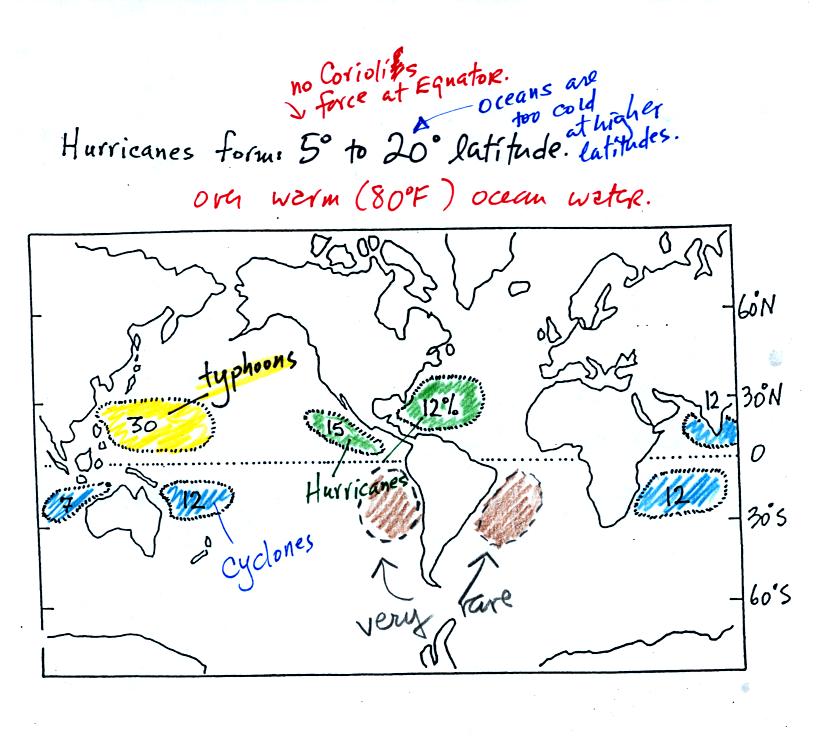 no Coriolis
force at Equator.
oceans are
too cold
at higher
latitudes.
Hurricanes form: 5° to 20° latitude.
over warm (80°F) ocean water.
60°N
typhoons
30°N
12
12%
15
30
0
Hurricanes
7
12
12
30°S
cyclones
60°S
very rare